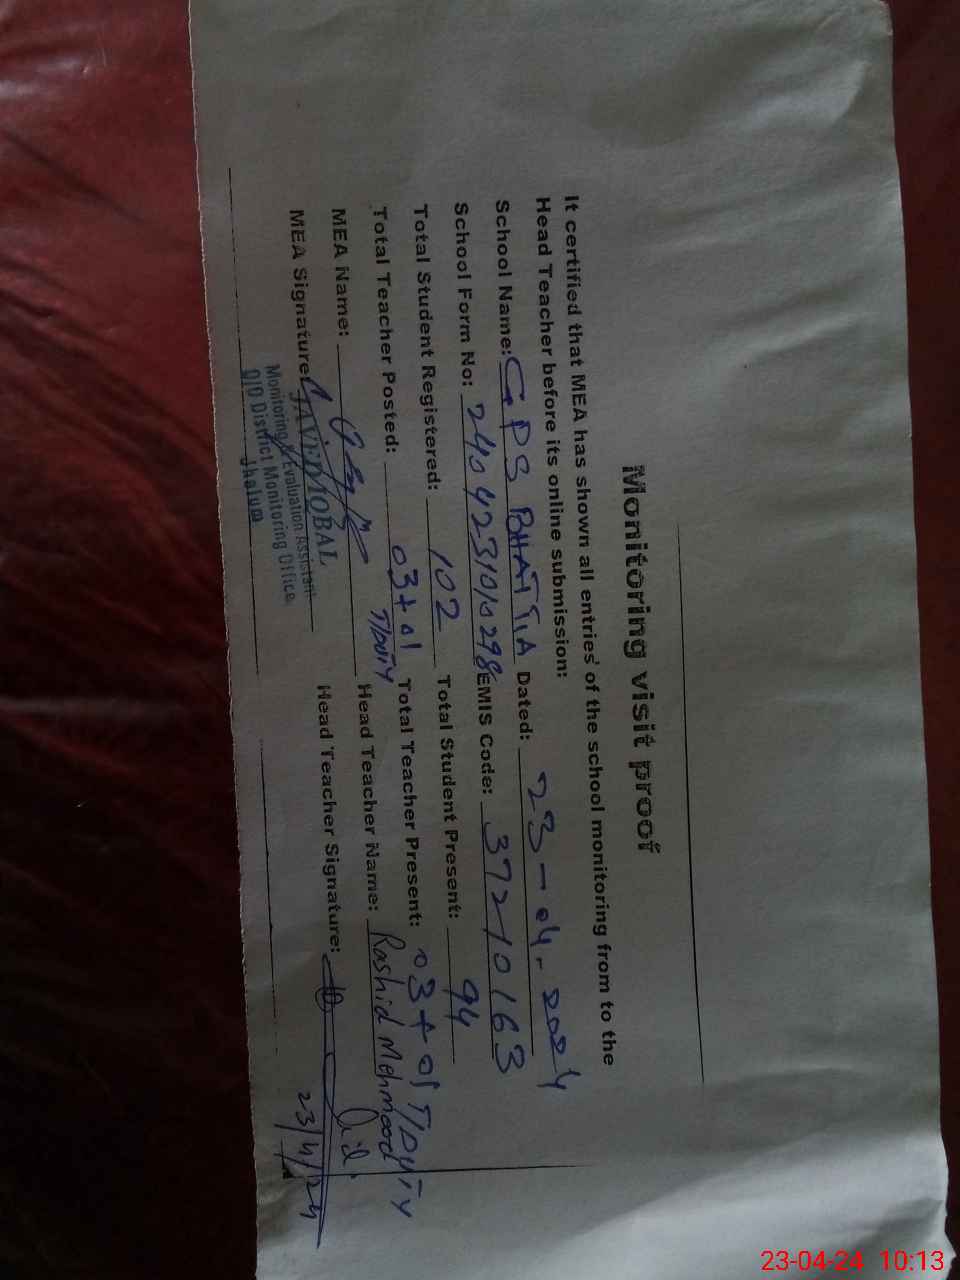 Monitoring visit proof
It certified that MEA has shown all entries of the school monitoring from to the
Head Teacher before its online submission:
School Name: GPS BHATTIA Dated: 23-04-2024
School Form No: EMIS Code: 37210163
Total Student Registered: 102 Total Student Present: 94
Total Teacher Posted: 03+01 T/DUTY Total Teacher Present: 03+01 T/DUTY
MEA Name: Head Teacher Name: Rashid Mehmood
MEA Signature Head Teacher Signature:
23/4/24
JAVED IQBAL
Monitoring & Evaluation Assistant
O/O District Monitoring Office
Jhelum
23-04-24 10:13